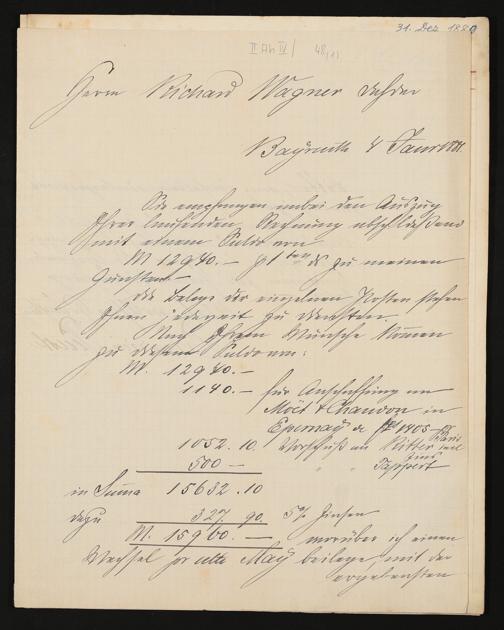 31. Dez 1880
II Ah IV / 48,11
Herrn Richard Wagner dahier
Bayreuth 4 Januar 1881.
Sie empfangen anbei den Auszug
Ihrer laufenden Rechnung abschließend
mit einem Saldo von
M 12940.— pr 1 ds zu meinen
Gunsten.
Die Belege der einzelnen Posten stehen
Ihnen jederzeit zu Diensten.
Nach Ihrem Wunsche kommen
zu diesem Saldo von:
M. 12940.—
1140.— für Anschaffung an
Moët & Chandon in
Epernay de 1405
1052.10. Vorschuß an Ritter Paris
500— " " Tappert
in Suma 15632.10
dazu 327.90. 5% Zinsen
M. 15960.— worüber ich einen
Wechsel per ulto May beilege, mit der
ergebensten